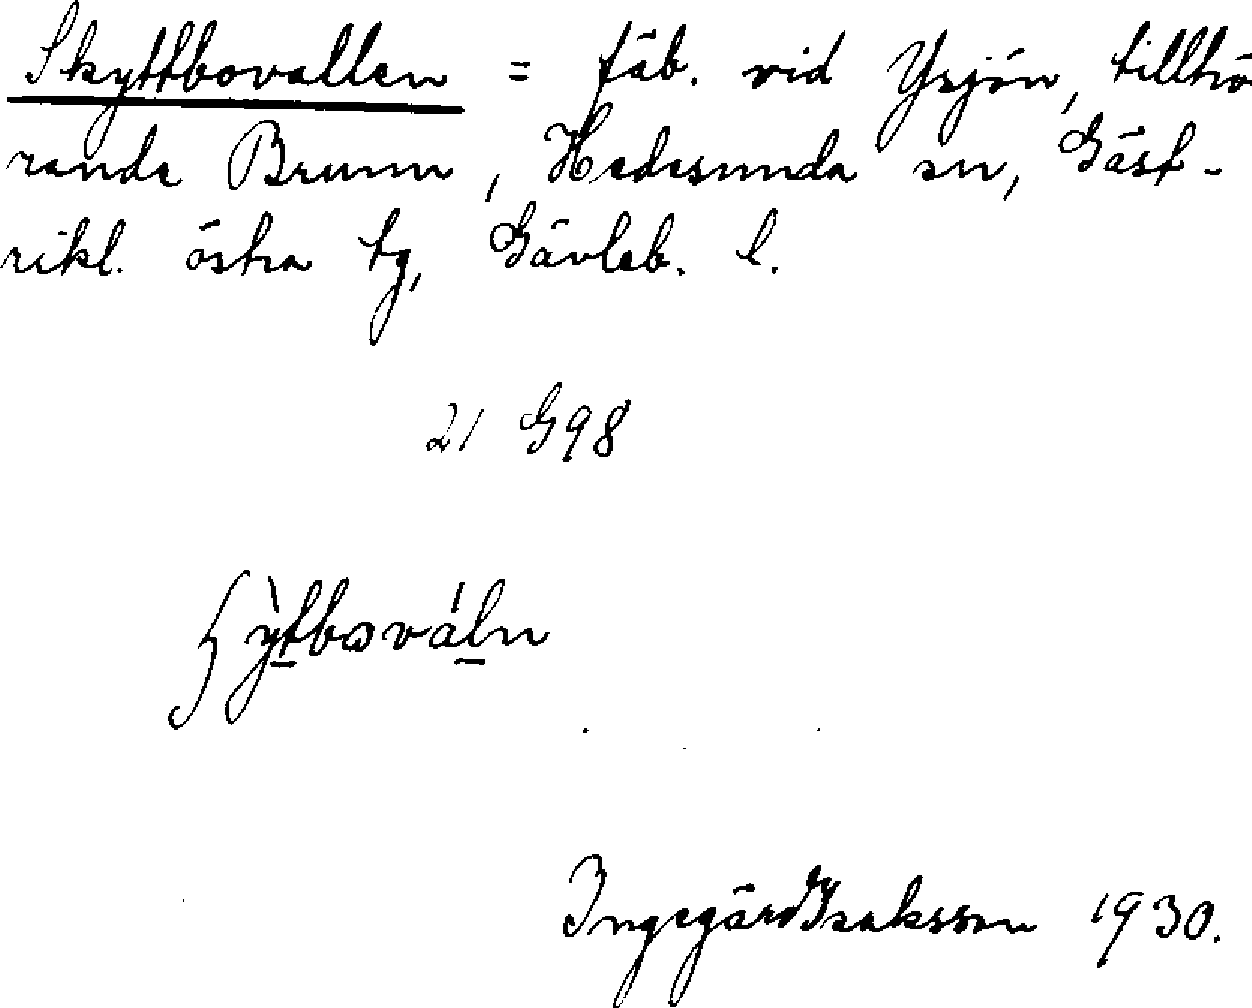 Skyttbovallen = fäb. vid Ysjön, tillhö
rande Brunn, Hedesunda sn, Gäst-
rikl. östra tg, Gävleb. l.
21 G98
Ingegärd Isaksson 1930.